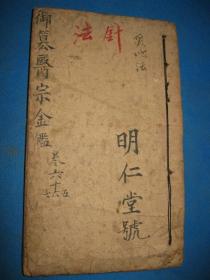 御纂醫宗金鑑
卷六十五
針法
明仁堂號